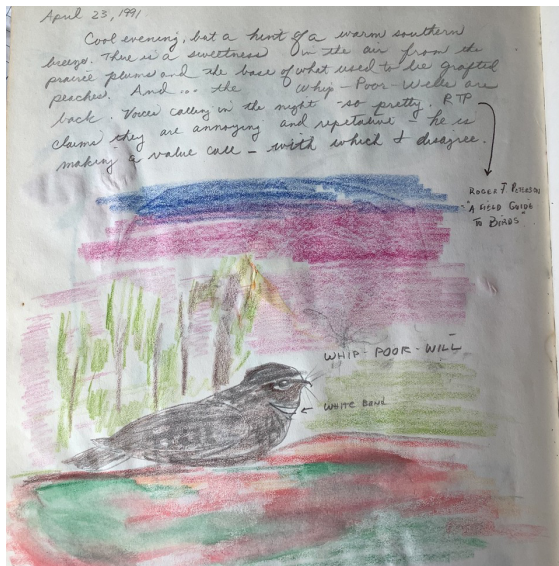 April 23, 1991
Cool evening, but a hint of a warm southern
breeze. There is a sweetness in the air from the
prairie plums and the base of what used to be grafted
peaches. And... the Whip-Poor-Wills are
back. Voices calling in the night so pretty. RTP
claims they are annoying and repetative - he is
making a value call - with which I disagree.
ROGER T. PETERSON
"A FIELD GUIDE
TO BIRDS"
WHIP-POOR-WILL
← WHITE BAND